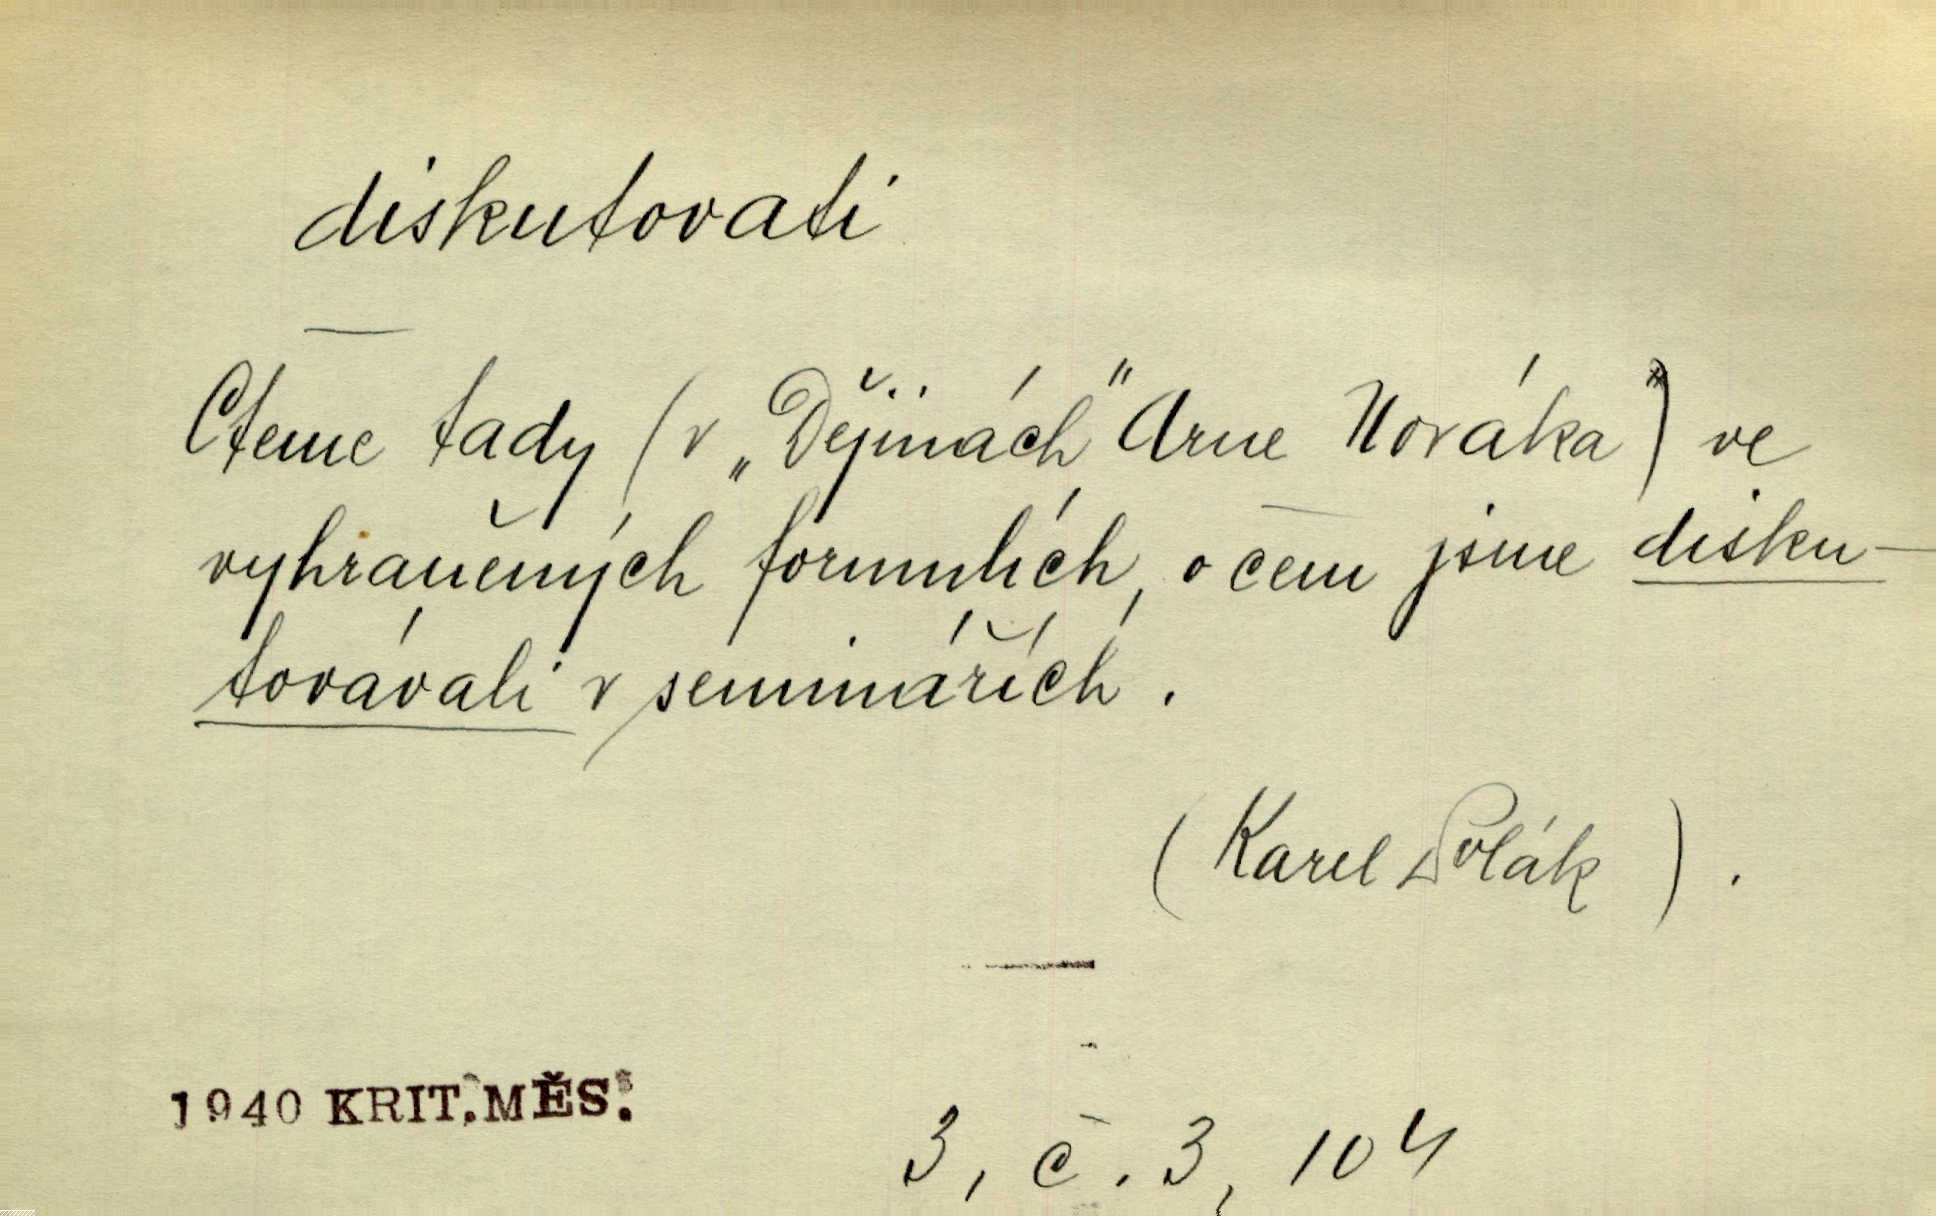 diskutovati
Čteme tady (v „Dějinách" Arne Nováka) ve
vyhraněných formulích, o čem jsme disku-
továvali v seminářích.
(Karel Polák).
1940 KRIT. MĚS.
3, č. 3, 104